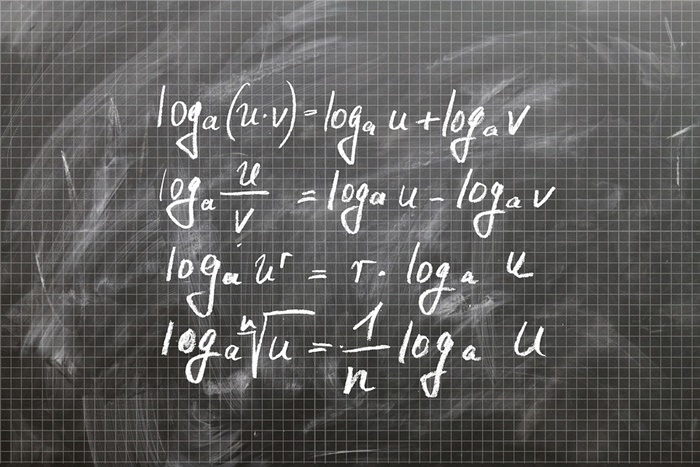 logₐ(u·v)=logₐ u+logₐ v
logₐ u/v = logₐ u - logₐ v
logₐ uʳ = r· logₐ u
logₐ ⁿ√u = 1/n logₐ u